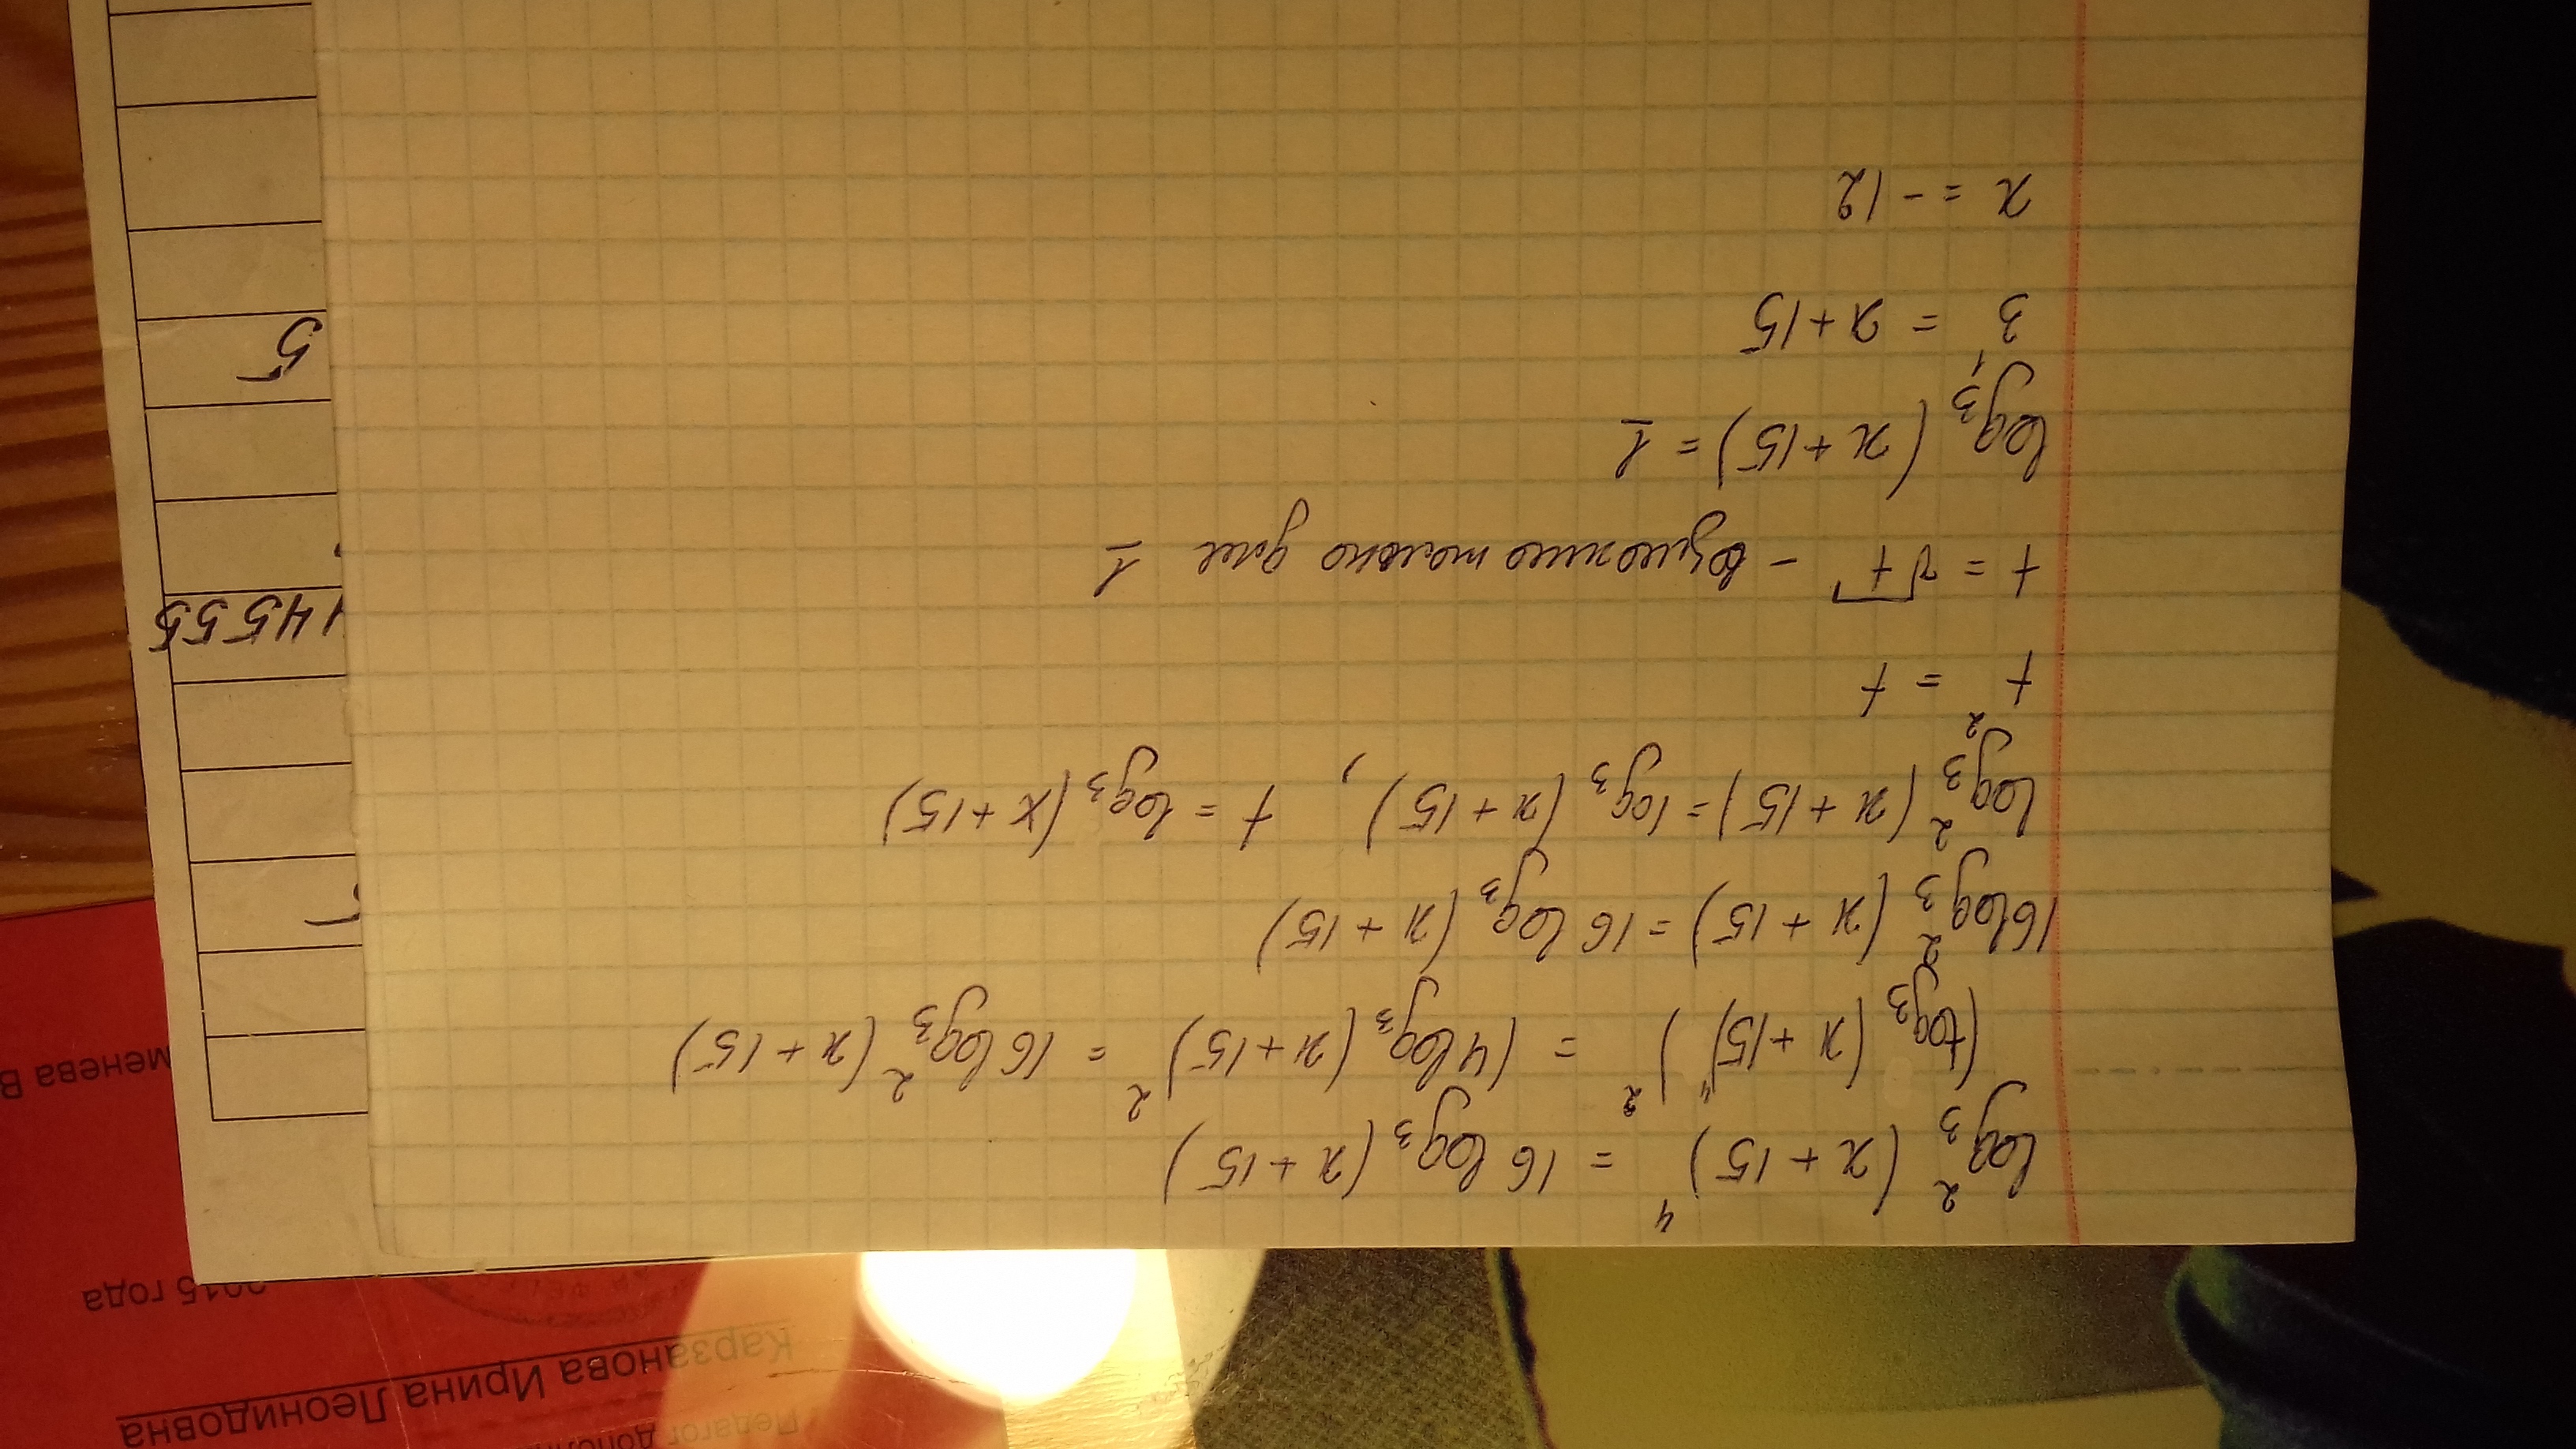 log₃²(x+15)⁴ = 16log₃(x+15)
(log₃(x+15)⁴)² = (4log₃(x+15))² = 16log₃²(x+15)
16log₃²(x+15) = 16log₃(x+15)
log₃²(x+15) = log₃(x+15), t = log₃(x+15)
t² = t
t = √t - возможно только для 1
log₃(x+15) = 1
3¹ = x+15
x = -12
5
14555
менева В
2015 года
Карзанова Ирина Леонидовна
Педагог допол